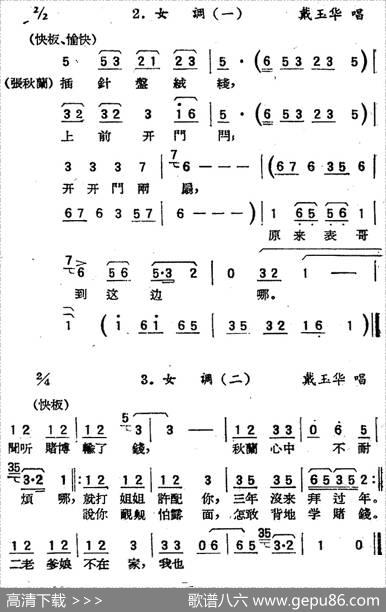 2/2 2. 女 調 (一) 戴玉华 唱
(快板、愉快)
5 53 21 23 | 5 · (6 53 23 5) |
(張秋蘭) 插 針 盤 絨 綫,
32 32 3 i6 | 5 · (6 53 23 5) |
上 前 开 門 閂,
3 3 3 7 | 7 6 - - - | (67 6 35 6 |
开 开 門 兩 扇,
67 63 57 | 6 - - -) | 1 65 56 1 |
原 来 表 哥
7 6 56 5·3 2 | 0 32 1 - |
到 这 边 哪。
1 (i 6i 65 | 35 32 16 1)
2/4 3. 女 調 (二) 戴玉华 唱
(快板)
12 12 | 12 12 | 5 3 3 | 3 - | 12 33 | 0 6 5 |
聞听 賭博 輸了 錢, 秋蘭 心中 不 耐
35 3·2 1 :| 17 12 | 12 12 | 1 1 | 33 35 | 65 35 2 :|
煩 哪, 就打 姐姐 許配 你, 三年 沒来 拜 过 年。
說你 覥觍 怕露 面, 怎敢 背地 学 賭錢。
12 12 | 12 3 | 33 06 | 65 35 3·2 | 1 0
二老 爹娘 不在 家, 我也
高清下载 >>> 歌谱八六 www.gepu86.com